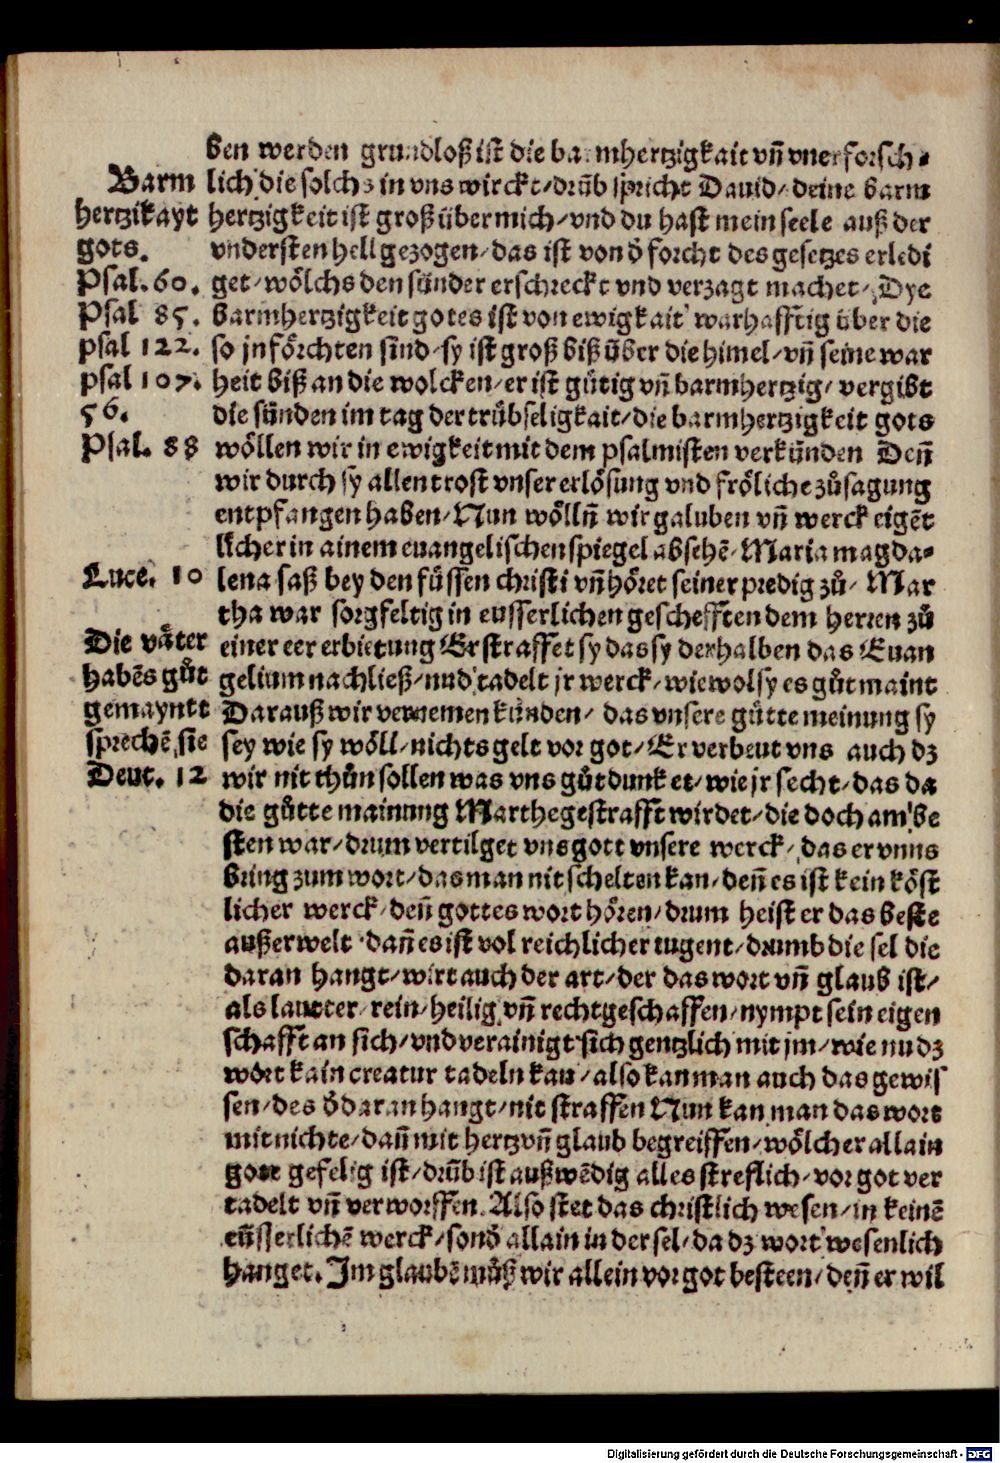 ben werden grundloß ist die barmhertzigkait vñ vnerforsch⸗
Barm
hertzikayt
gots.
Psal. 60.
Psal 85.
psal 122.
psal 107.
56.
Psal. 88
lich die solchs in vns wirckt/ drũb spricht Dauid/ deine barm
hertzigkeit ist groß über mich/ vnd du hast mein seele auß der
vndersten hell gezogen/ das ist von d̕ forcht des gesetzes erledi
get/ wölchs den sünder erschreckt vnd verzagt machet/ Dye
barmhertzigkeit gotes ist von ewigkait warhafftig über die
so jn förchten sind/ sy ist groß biß über die himel/ vñ seine war
heit biß an die wolcken/ er ist gütig vñ barmhertzig/ vergibt
die sünden im tag der trübseligkait/ die barmhertzigkeit gots
wöllen wir in ewigkeit mit dem psalmisten verkünden Deñ
wir durch sy allen trost vnser erlösung vnd fröliche zůsagung
entpfangen haben/ Nun wöllñ wir galuben vñ werck eigẽt
licher in ainem euangelischen spiegel absehẽ/ Maria magda⸗
Luce. 10
lena saß bey den füssen christi vñ höret seiner predig zů/ Mar
tha war sorgfeltig in eusserlichen geschefften dem herren zů
Die väter
habẽs gůt
gemayntt
sprechẽ sie
Deut. 12
einer eer erbietung Er straffet sy das sy derhalben das Euan
gelium nachließ/ vnd tadelt jr werck/ wiewol sy es gůt maint
Darauß wir vernemen künden/ das vnsere gůtte meinung sy
sey wie sy wöll/ nichts gelt vor got/ Er verbeut vns auch dz
wir nit thůn sollen was vns gůt dunket/ wie jr secht/ das da
die gůtte mainung Marthe gestrafft wirdet/ die doch am be
sten war/ drum vertilget vns gott vnsere werck/ das er vnns
bring zum wort/ das man nit schelten kan/ deñ es ist kein köst
licher werck/ deñ gottes wort hören/ drum heist er das beste
außerwelt dañ es ist vol reichlicher tugent/ drumb die sel die
daran hangt/ wirt auch der art/ der das wort vñ glaub ist/
als lautter/ rein/ heilig vñ rechtgeschaffen/ nympt sein eigen
schafft an sich/ vnd verainigt sich gentzlich mit jm/ wie nu dz
wort kain creatur tadeln kan/ also kan man auch das gewis
sen/ des d̕ daran hangt/ nit straffen Nun kan man das wort
mit nichte/ dañ mit hertz vñ glaub begreiffen/ wölcher allain
got gefelig ist/ drũb ist außwẽdig alles streflich/ vor got ver
tadelt vñ verworffen. Also stet das christlich wesen/ in keinẽ
eüsserlichẽ werck/ sond̕ allain in der sel/ da dz wort wesenlich
hanget. Im glaubẽ můß wir allein vor got besteen/ deñ er wil
Digitalisierung gefördert durch die Deutsche Forschungsgemeinschaft - DFG